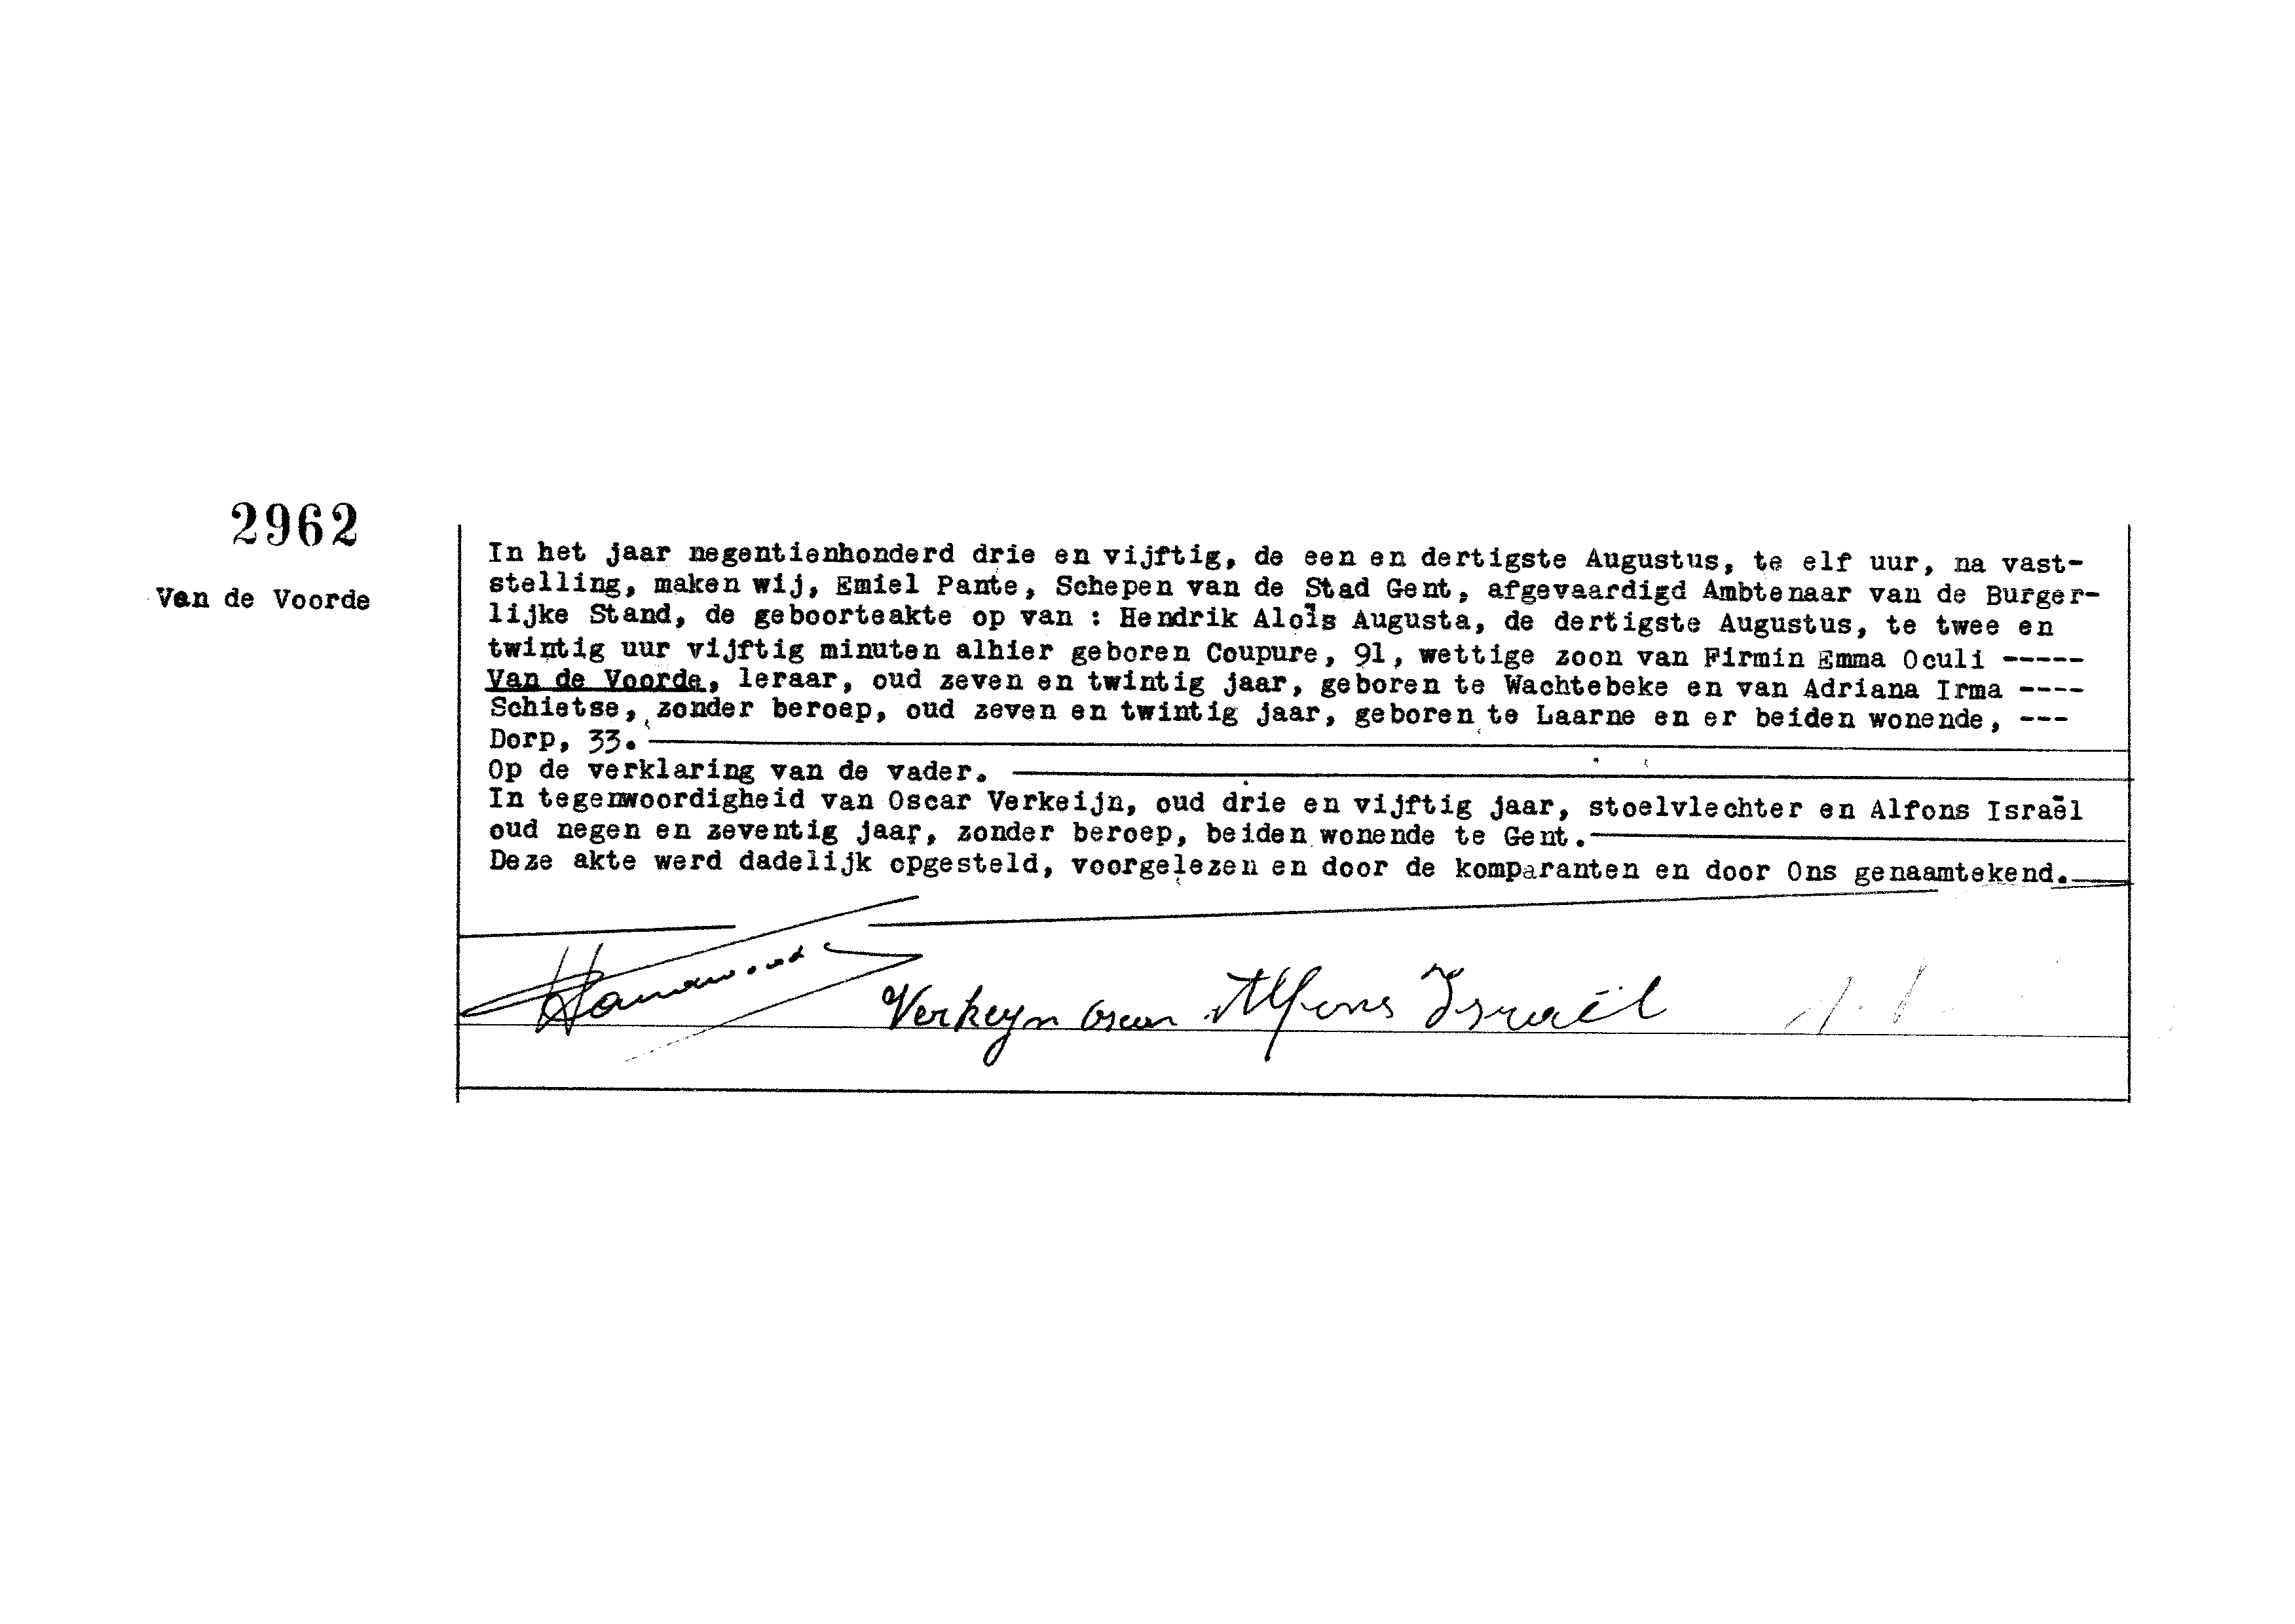 2962
Van de Voorde
In het jaar negentienhonderd drie en vijftig, de een en dertigste Augustus, te elf uur, na vast-
stelling, maken wij, Emiel Pante, Schepen van de Stad Gent, afgevaardigd Ambtenaar van de Burger-
lijke Stand, de geboorteakte op van : Hendrik Aloïs Augusta, de dertigste Augustus, te twee en
twintig uur vijftig minuten alhier geboren Coupure, 91, wettige zoon van Firmin Emma Oculi -----
Van de Voorde, leraar, oud zeven en twintig jaar, geboren te Wachtebeke en van Adriana Irma ----
Schietse, zonder beroep, oud zeven en twintig jaar, geboren te Laarne en er beiden wonende, ---
Dorp, 33.
Op de verklaring van de vader.
In tegenwoordigheid van Oscar Verkeijn, oud drie en vijftig jaar, stoelvlechter en Alfons Israël
oud negen en zeventig jaar, zonder beroep, beiden wonende te Gent.
Deze akte werd dadelijk opgesteld, voorgelezen en door de komparanten en door Ons genaamtekend.
Verkeyn Oscar Alfons Israël